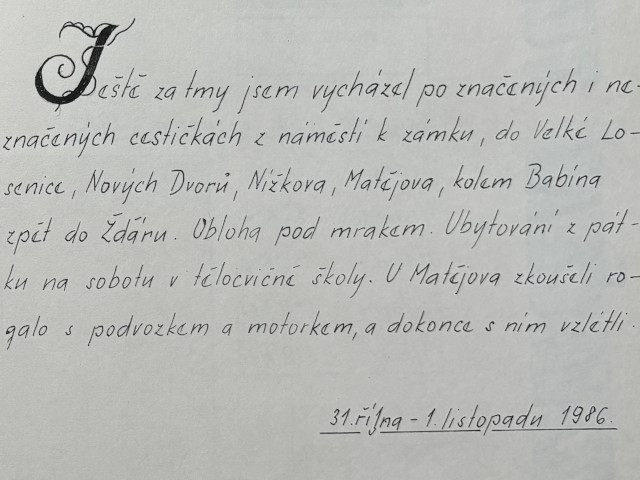 Ještě za tmy jsem vycházel po značených i ne-
značených cestičkách z náměstí k zámku, do Velké Lo-
senice, Nových Dvorů, Nížkova, Matějova, kolem Babína
zpět do Žďáru. Obloha pod mrakem. Ubytování z pát-
ku na sobotu v tělocvičně školy. U Matějova zkoušeli ro-
galo s podvozkem a motorkem, a dokonce s ním vzlétli.
31. října - 1. listopadu 1986.